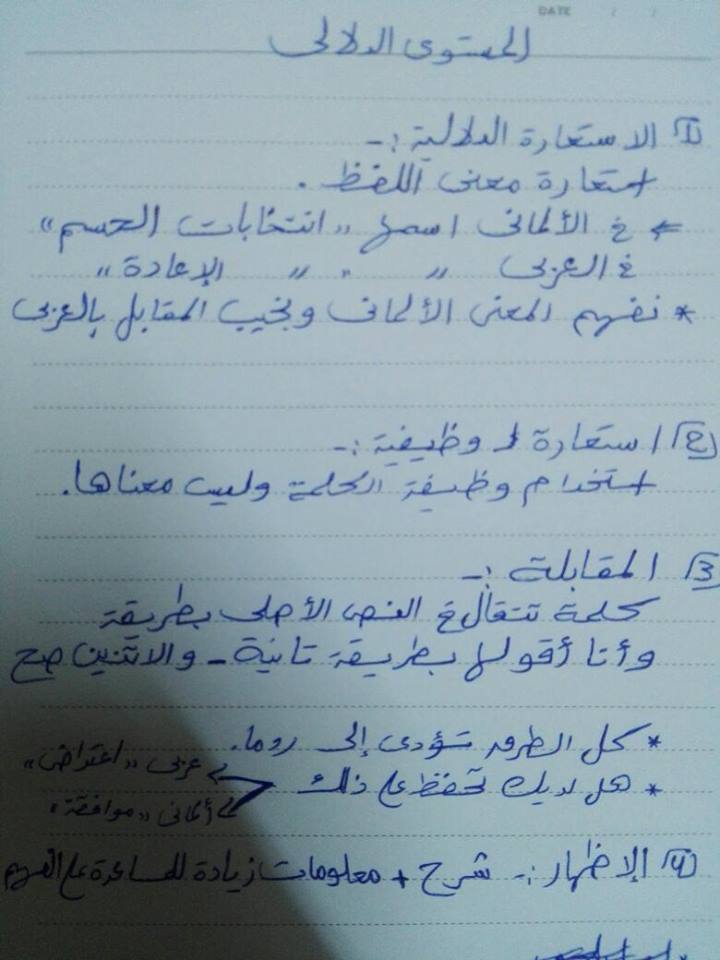 DATE / /
المستوى الدلالى
1 الاستعارة الدلالية :-
استعارة معنى اللفظ .
← فى الألمانى اسمها "انتخابات الحسم"
فى العربى " " " الإعادة "
* نفهم المعنى الألمانى ونجيب المقابل بالعربى
2 استعارة وظيفية :-
استخدام وظيفة الكلمة وليس معناها.
3 المقابلة :-
كلمة تتقال فى النص الأصلى بطريقة
وأنا أقولها بطريقة تانية - والاتنين صح
* كل الطرق تؤدى إلى روما.
* هل لديك تحفظ على ذلك
عربى "اعتراض"
ألمانى "موافقة"
4 الإظهار :- شرح + معلومات زيادة للمساعدة على الفهم